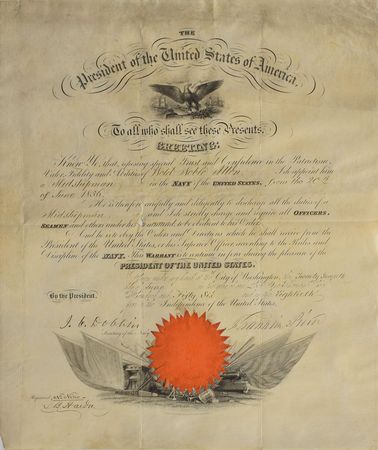 THE
President of the United States of America,
To all who shall see these Presents,
GREETING:
Know Ye, that, reposing special Trust and Confidence in the Patriotism,
Valor, Fidelity and Abilities of Noble I do appoint him
a Midshipman in the NAVY of the UNITED STATES, from the 20th
of June 1856
He is therefore carefully and diligently to discharge all the duties of a
Midshipman and I do strictly charge and require all OFFICERS,
SEAMEN and others under his command to be obedient to his Orders.
And he is to obey the Orders and Directions which he shall receive from the
President of the United States, or his Superior Officer according to the Rules and
Discipline of the NAVY. This WARRANT is to continue in force during the pleasure of the
PRESIDENT OF THE UNITED STATES.
City of Washington,
Fifty Six Eightieth
Independence of the United States.
By the President,
J. C. Dobbin Franklin Pierce
Secretary of the Navy
Registered